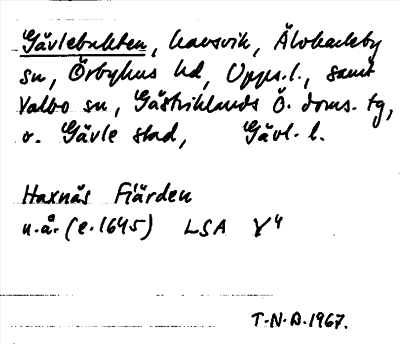 Gävlebukten, havsvik, Älvkarleby
sn, Örbyhus hd, Upps. l., samt
Valbo sn, Gästriklands Ö. doms. tg,
o. Gävle stad, Gävl. l.
Haxnäs Fiärden
u.å. (e. 1645) LSA Y4
T.N.B. 1967.